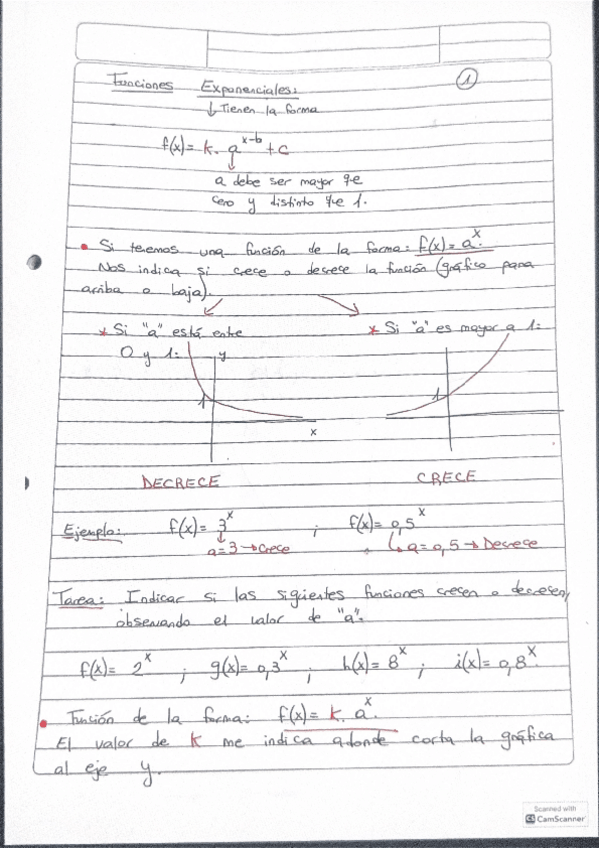 Funciones Exponenciales: 1
↓ Tienen la forma
f(x)= k. a^(x-b) + c
↓
a debe ser mayor qe
cero y distinto qe 1.
• Si tenemos una función de la forma: f(x)= a^x.
Nos indica si crece o decrece la función (gráfico para
arriba o baja).
* Si "a" está entre
0 y 1:
y
1
x
DECRECE
* Si "a" es mayor a 1:
1
CRECE
Ejemplo: f(x)= 3^x ; f(x)= 0,5^x
a=3 → Crece
a=0,5 → Decrece
Tarea: Indicar si las siguientes funciones crecen o decrecen,
observando el valor de "a".
f(x)= 2^x ; g(x)= 0,3^x ; h(x)= 8^x ; i(x)= 0,8^x.
• Función de la forma: f(x)= k. a^x.
El valor de k me indica adonde corta la gráfica
al eje y.
Scanned with
CS CamScanner